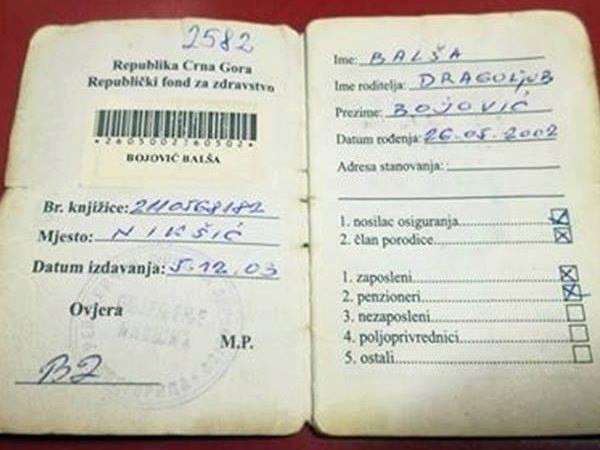 2582
Republika Crna Gora
Republički fond za zdravstvo
*2605002760502*
BOJOVIĆ BALŠA
Br. knjižice: 2110568182
Mjesto: NIKŠIĆ
Datum izdavanja: 5.12.03
Ovjera
M.P.
Ime: BALŠA
Ime roditelja: DRAGOLJUB
Prezime: BOJOVIĆ
Datum rođenja: 26.05.2002
Adresa stanovanja:
1. nosilac osiguranja
2. član porodice
1. zaposleni
2. penzioneri
3. nezaposleni
4. poljoprivrednici
5. ostali